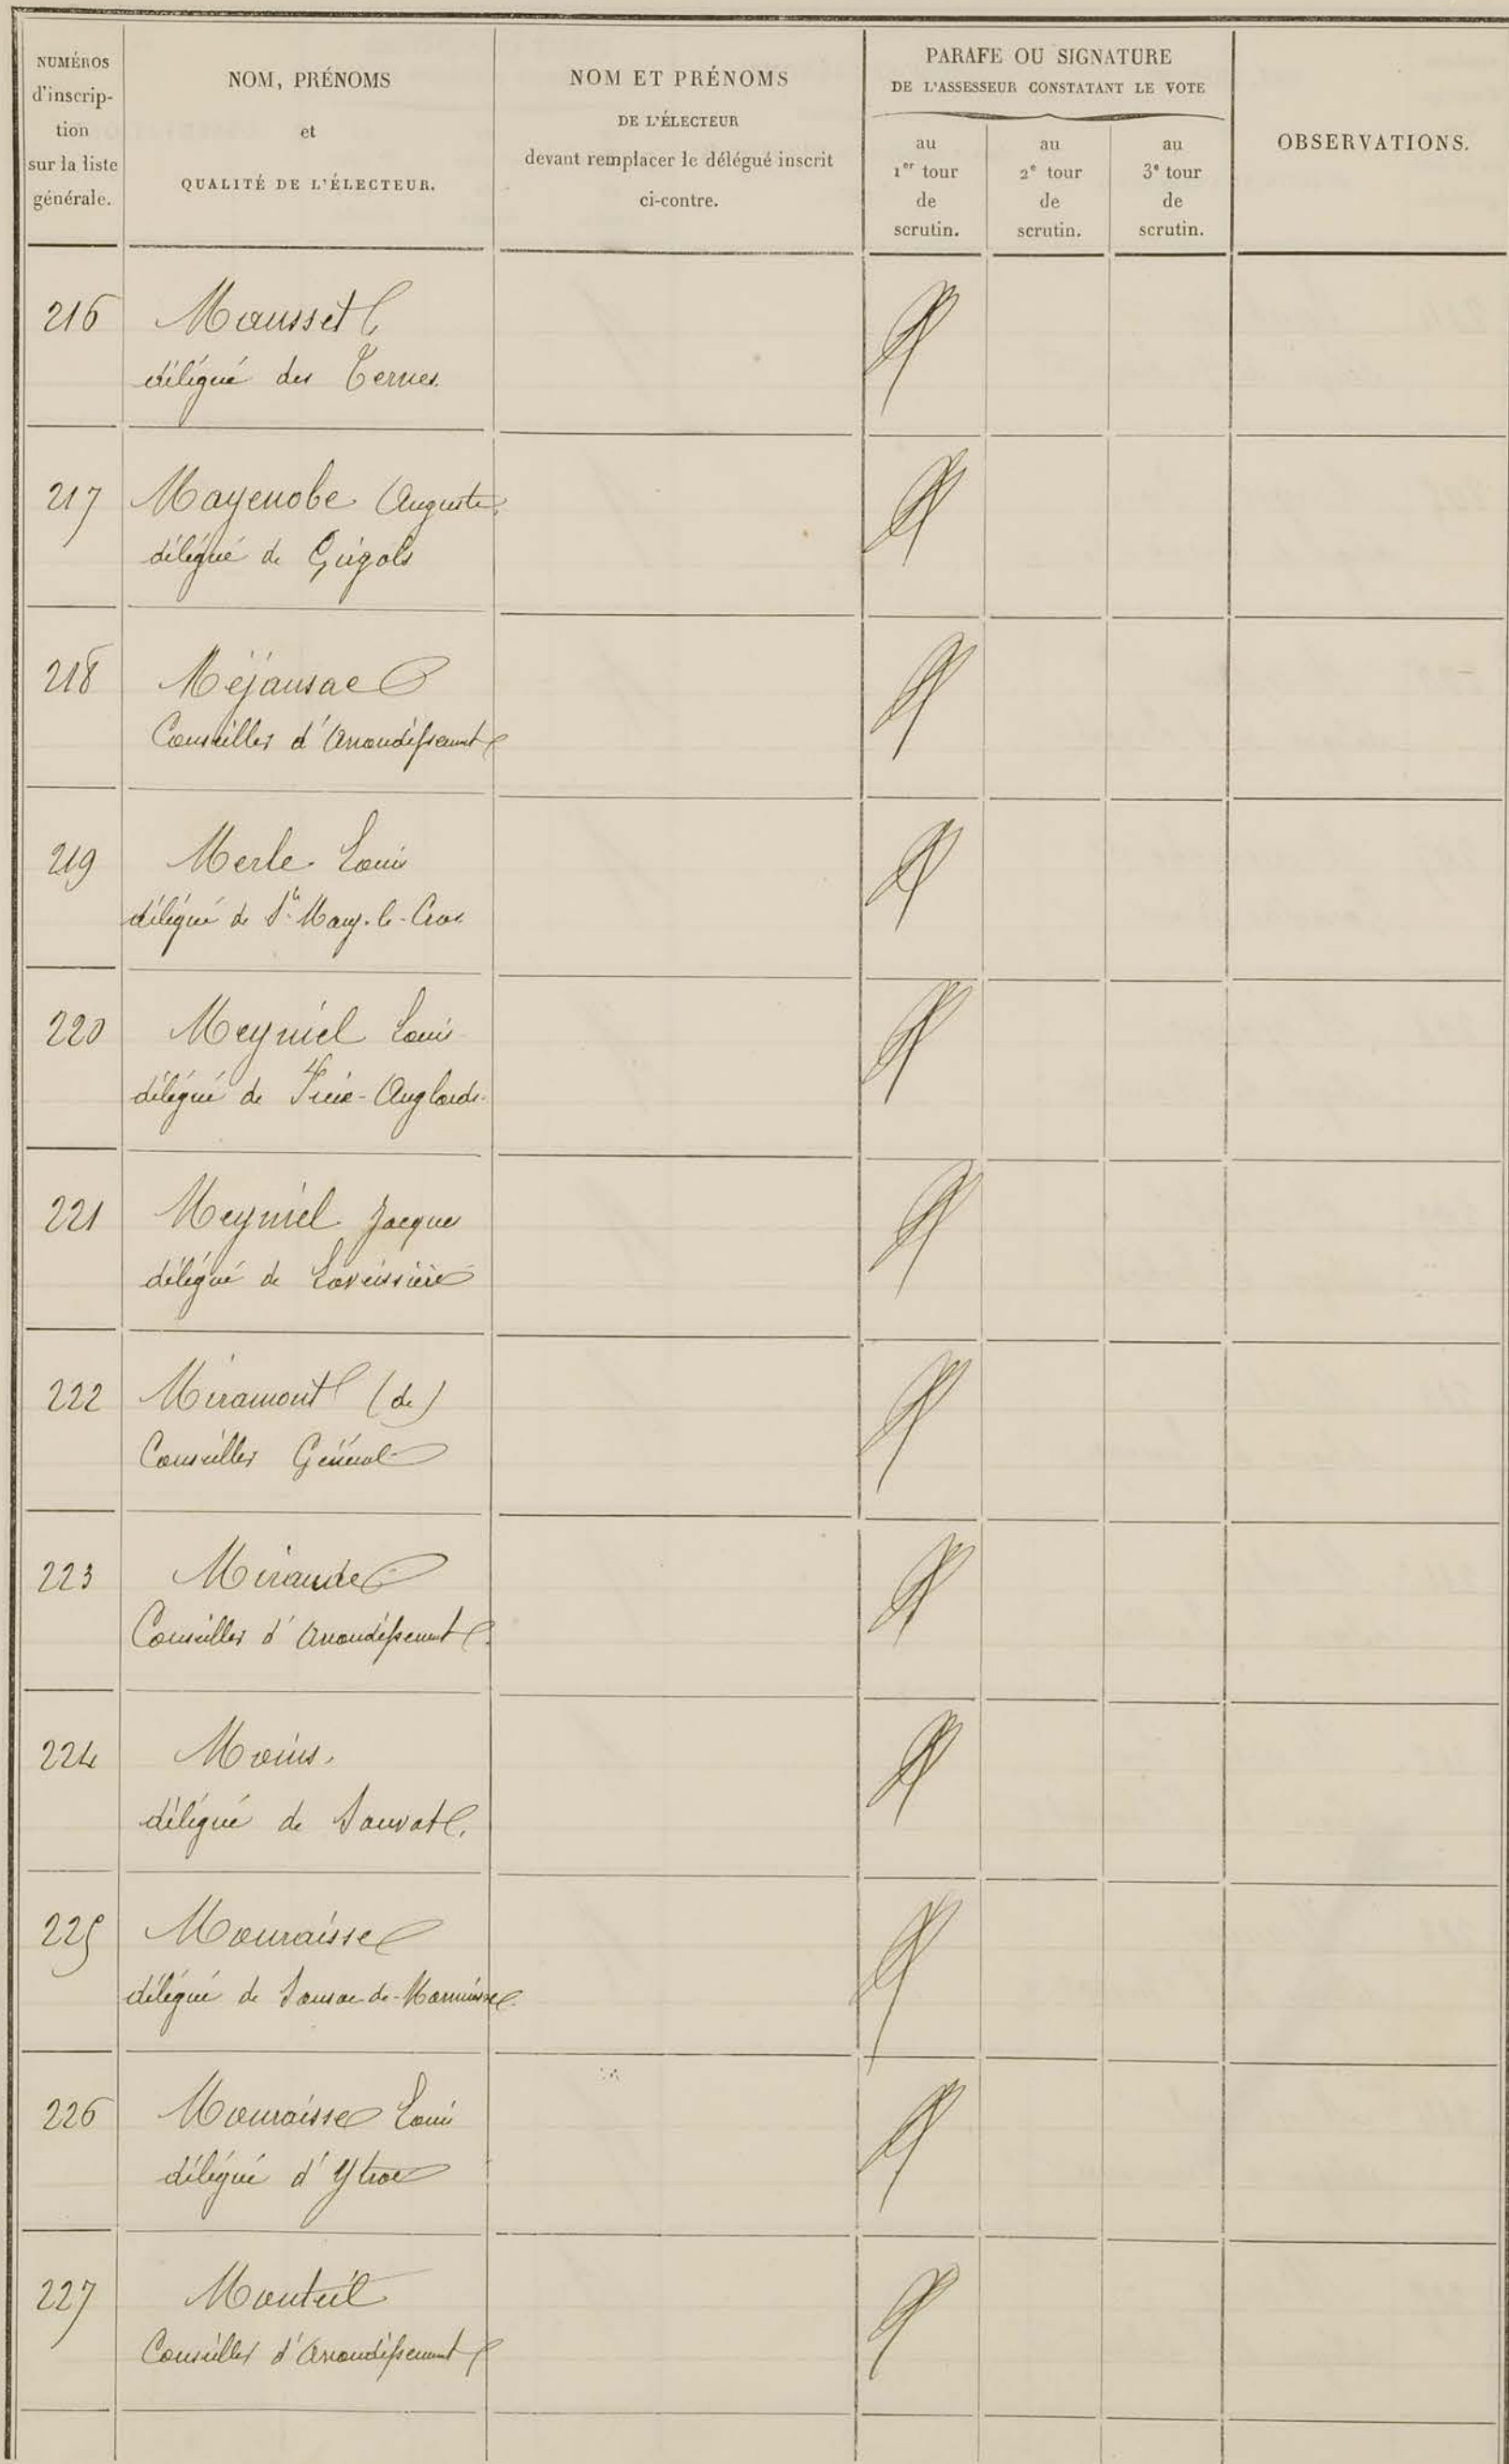 NUMÉROS
d'inscrip-
tion
sur la liste
générale.
NOM, PRÉNOMS
et
QUALITÉ DE L'ÉLECTEUR.
NOM ET PRÉNOMS
DE L'ÉLECTEUR
devant remplacer le délégué inscrit
ci-contre.
PARAFE OU SIGNATURE
DE L'ASSESSEUR CONSTATANT LE VOTE
au
1er tour
de
scrutin.
au
2e tour
de
scrutin.
au
3e tour
de
scrutin.
OBSERVATIONS.
216 Mausset
délégué des Ternes.
217 Mayenobe Auguste.
délégué de
218 Méjansac
Conseiller d'Arrondissement
219 Merle Louis
délégué de St Mary-le-Cros.
220 Meyniel Louis
délégué de Freix-Anglards.
221 Meyniel Jacques
délégué de Laveissière
222 Miramont (de)
Conseiller Général
223 Mirande
Conseiller d'Arrondissement.
224 Moins.
délégué de Sauvat.
225 Mouraisse
délégué de Sansac-de-Marmiesse.
226 Mouraisse Louis
délégué d'Ytrac
227 Monteil
Conseiller d'Arrondissement